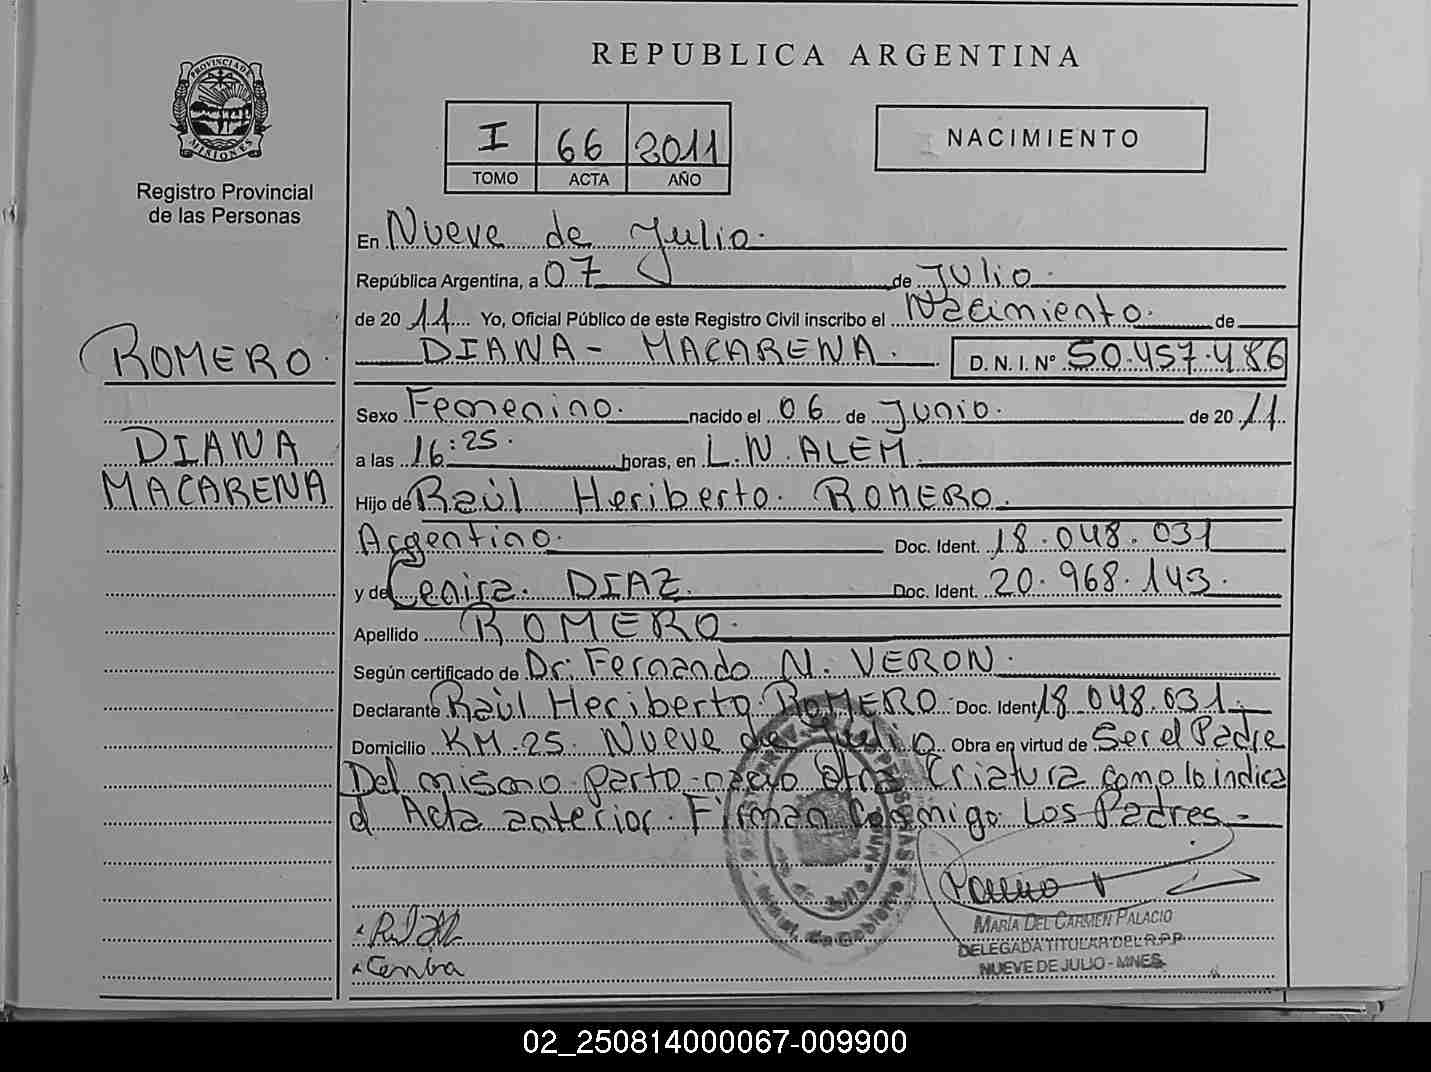 REPUBLICA ARGENTINA
PROVINCIA DE MISIONES
Registro Provincial
de las Personas
I 66 2011
TOMO ACTA AÑO
NACIMIENTO
En Nueve de Julio.
República Argentina, a 07 de Julio.
de 2011 Yo, Oficial Público de este Registro Civil inscribo el Nacimiento. de
ROMERO.
DIANA - MACARENA. D. N. I. Nº 50.457.486
Sexo Femenino. nacido el 06 de Junio. de 2011.
DIANA
MACARENA
a las 16:25. horas, en L.N. ALEM.
Hijo de Raúl Heriberto. ROMERO.
Argentino. Doc. Ident. 18.048.031
y de Cenira. DIAZ. Doc. Ident. 20.968.143.
Apellido ROMERO.
Según certificado de Dr. Fernando N. VERON.
Declarante Raúl Heriberto ROMERO. Doc. Ident 18.048.031.
Domicilio KM.25. Nueve de Julio. Obra en virtud de Ser el Padre
Del mismo parto nacio otra Criatura como lo indica
el Acta anterior. Firman Conmigo Los Padres.-
MARÍA DEL CARMEN PALACIO
DELEGADA TITULAR DEL R.P.P
NUEVE DE JULIO - MNES.
02_250814000067-009900